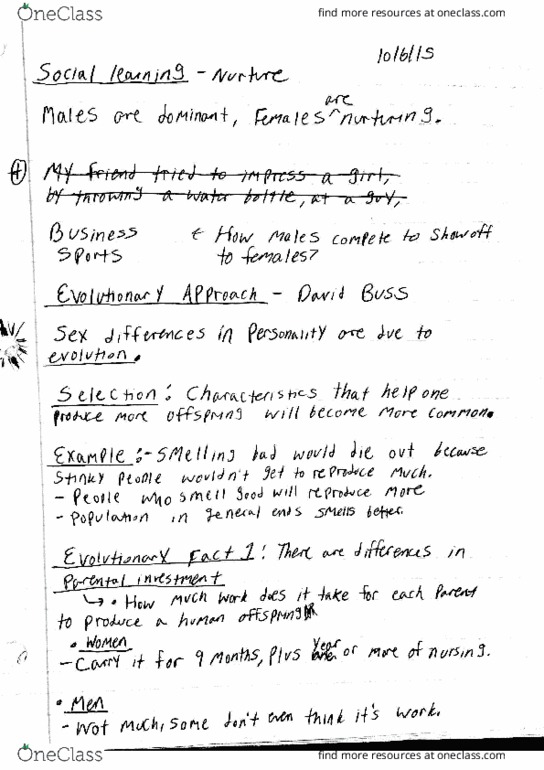 OneClass
find more resources at oneclass.com
10/6/15
Social learning - Nurture
are
Males are dominant, Females ^ nurturing.
My friend tried to impress a girl,
by throwing a water bottle, at a guy,
Business ← How males compete to show off
Sports to females?
Evolutionary Approach - David Buss
Sex differences in Personality are due to
evolution.
Selection: Characteristics that help one
produce more offspring will become more common.
Example:- Smelling bad would die out because
stinky people wouldn't get to reproduce much.
- People who smell good will reproduce more
- Population in general ends smells better.
Evolutionary Fact 1: There are differences in
Parental investment
↳ • How much work does it take for each Parent
to produce a human offspring
• Women
- Carry it for 9 months, plus year or more of nursing.
• Men
- Not much, some don't even think it's work.
OneClass
find more resources at oneclass.com